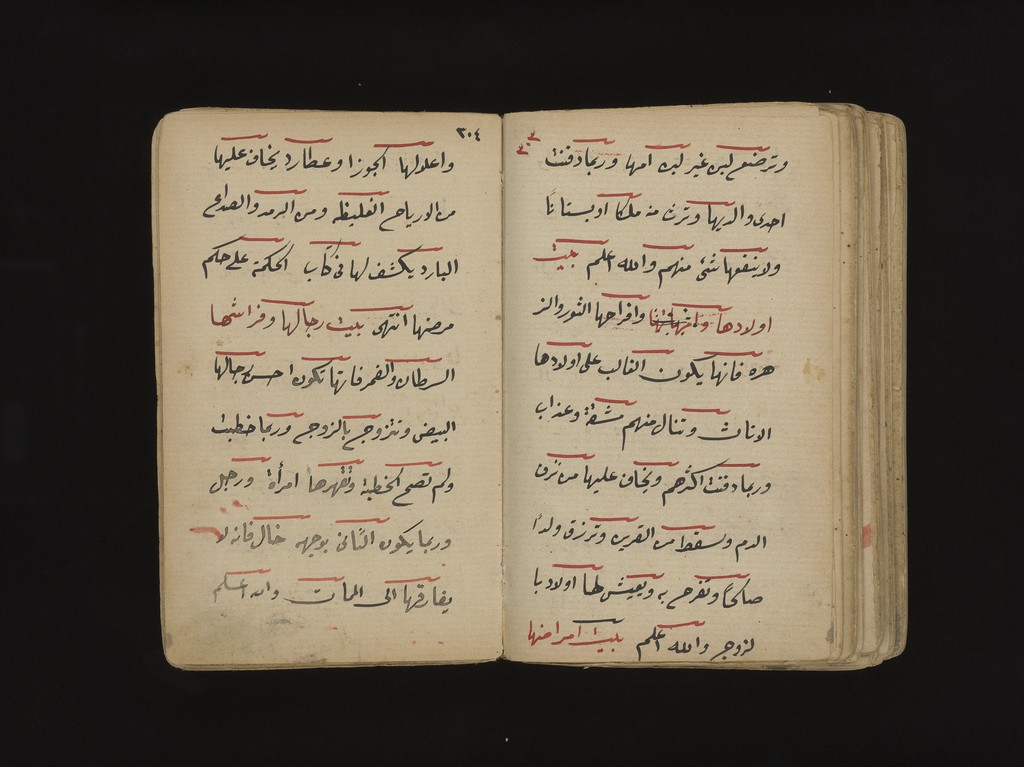 ٣٠٣
وترضع لبن غير لبن امها وربما دفنت
احدى والديها وترث منه ملكا او بستانا
ولا ينفعها شئ منهم والله اعلم بيت
اولادها وافراحها الثور والز
هره فانها يكون الغالب على اولادها
الاناث وتنال منهم مشقة وعذاب
وربما دفنت اكثرهم ويخاف عليها من نزف
الدم وتسقط من القرين وترزق ولدا
صالحا وتفرح به ويعيش لها اولاد با
لزوج والله اعلم بيت امراضها
٣٠٤
واعلولها الجوزا وعطارد يخاف عليها
من الارياح الغليظه ومن الرمد والصداع
البارد يكشف لها فى كتاب الحكمة على حكم
مرضها انتهى بيت رجالها وفراشها
السطان والقمر فانها تكون احسن رجالها
البيض وتتزوج بالزوج وربما خطبت
ولم تصح الخطبة وتقهرها امرأة ورجل
وربما يكون الثانى بوجهه خال فانه لا
يفارقها الى الممات والله اعلم